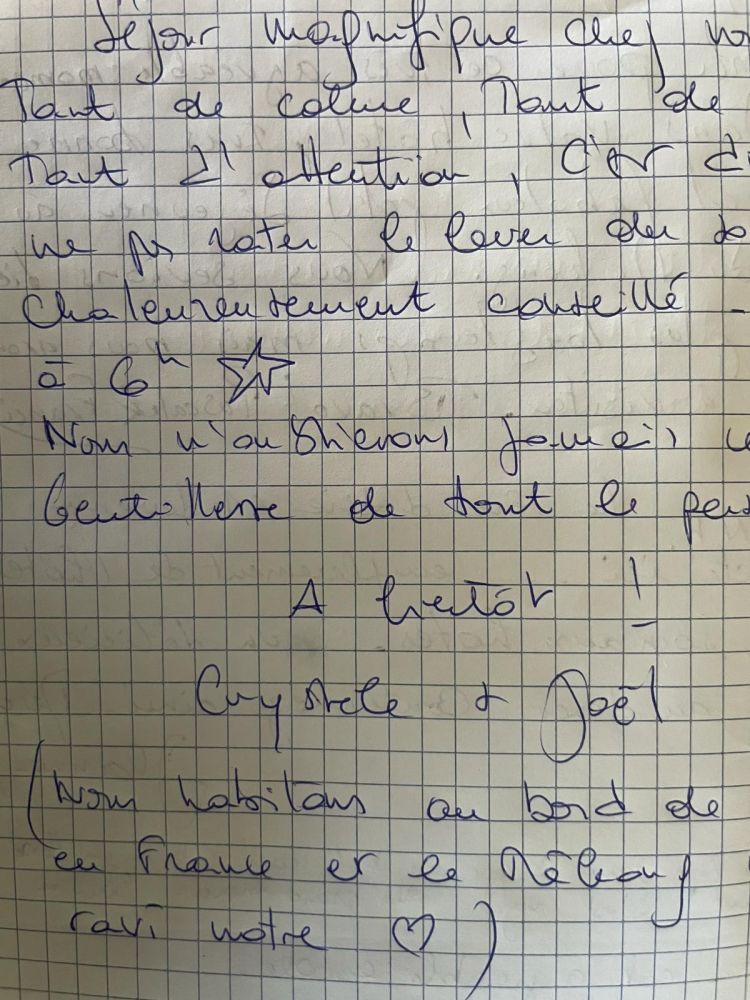 Séjour magnifique chez
Tant de calme, Tant de
Tant d'attention, C'est
ne pas rater le lever du
Chaleureusement conseillé -
à 6h ☆
Nous n'oublierons jamais
Gentillesse de tout le
A bientôt !
Crystele & Joël
(Nous habitons au bord de
en France et le Mékong
ravi notre ♡)